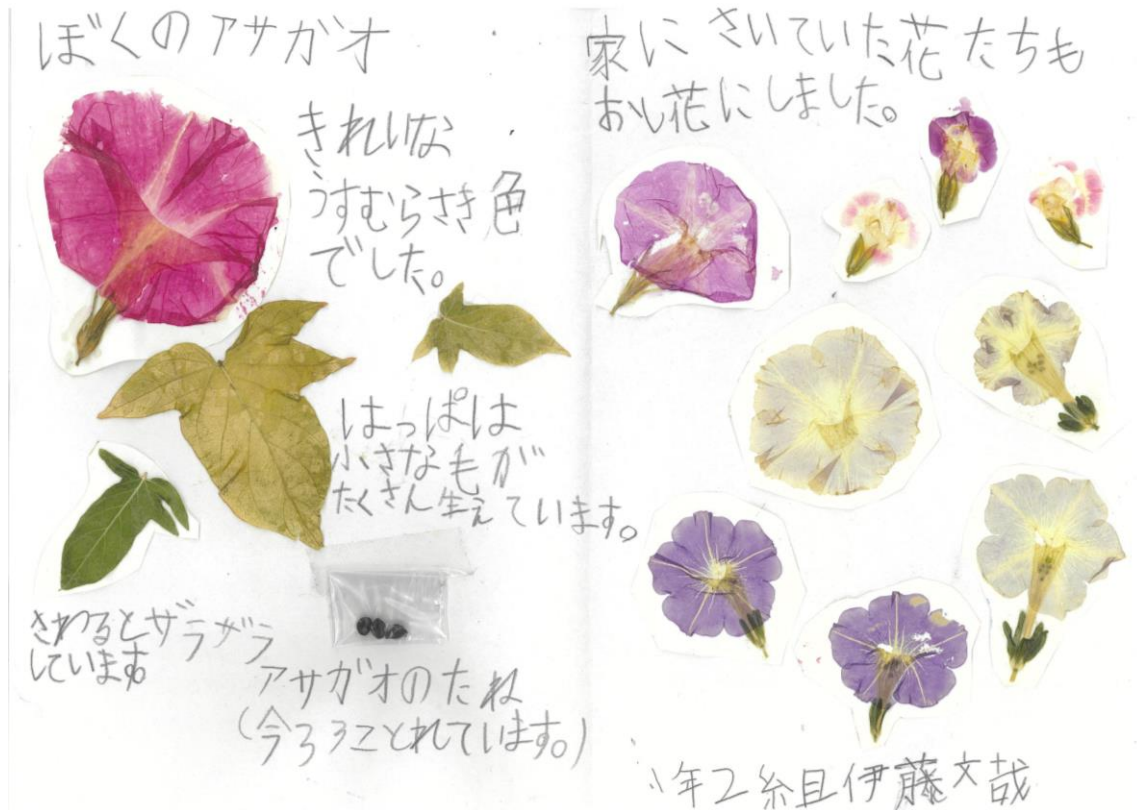 ぼくのアサガオ
きれいな
うすむらさき色
でした。
はっぱは
小さな毛が
たくさん生えています。
さわるとザラザラ
しています
アサガオのたね
(今ろろことれています。)
家にさいていた花たちも
おし花にしました。
1年2組伊藤文哉